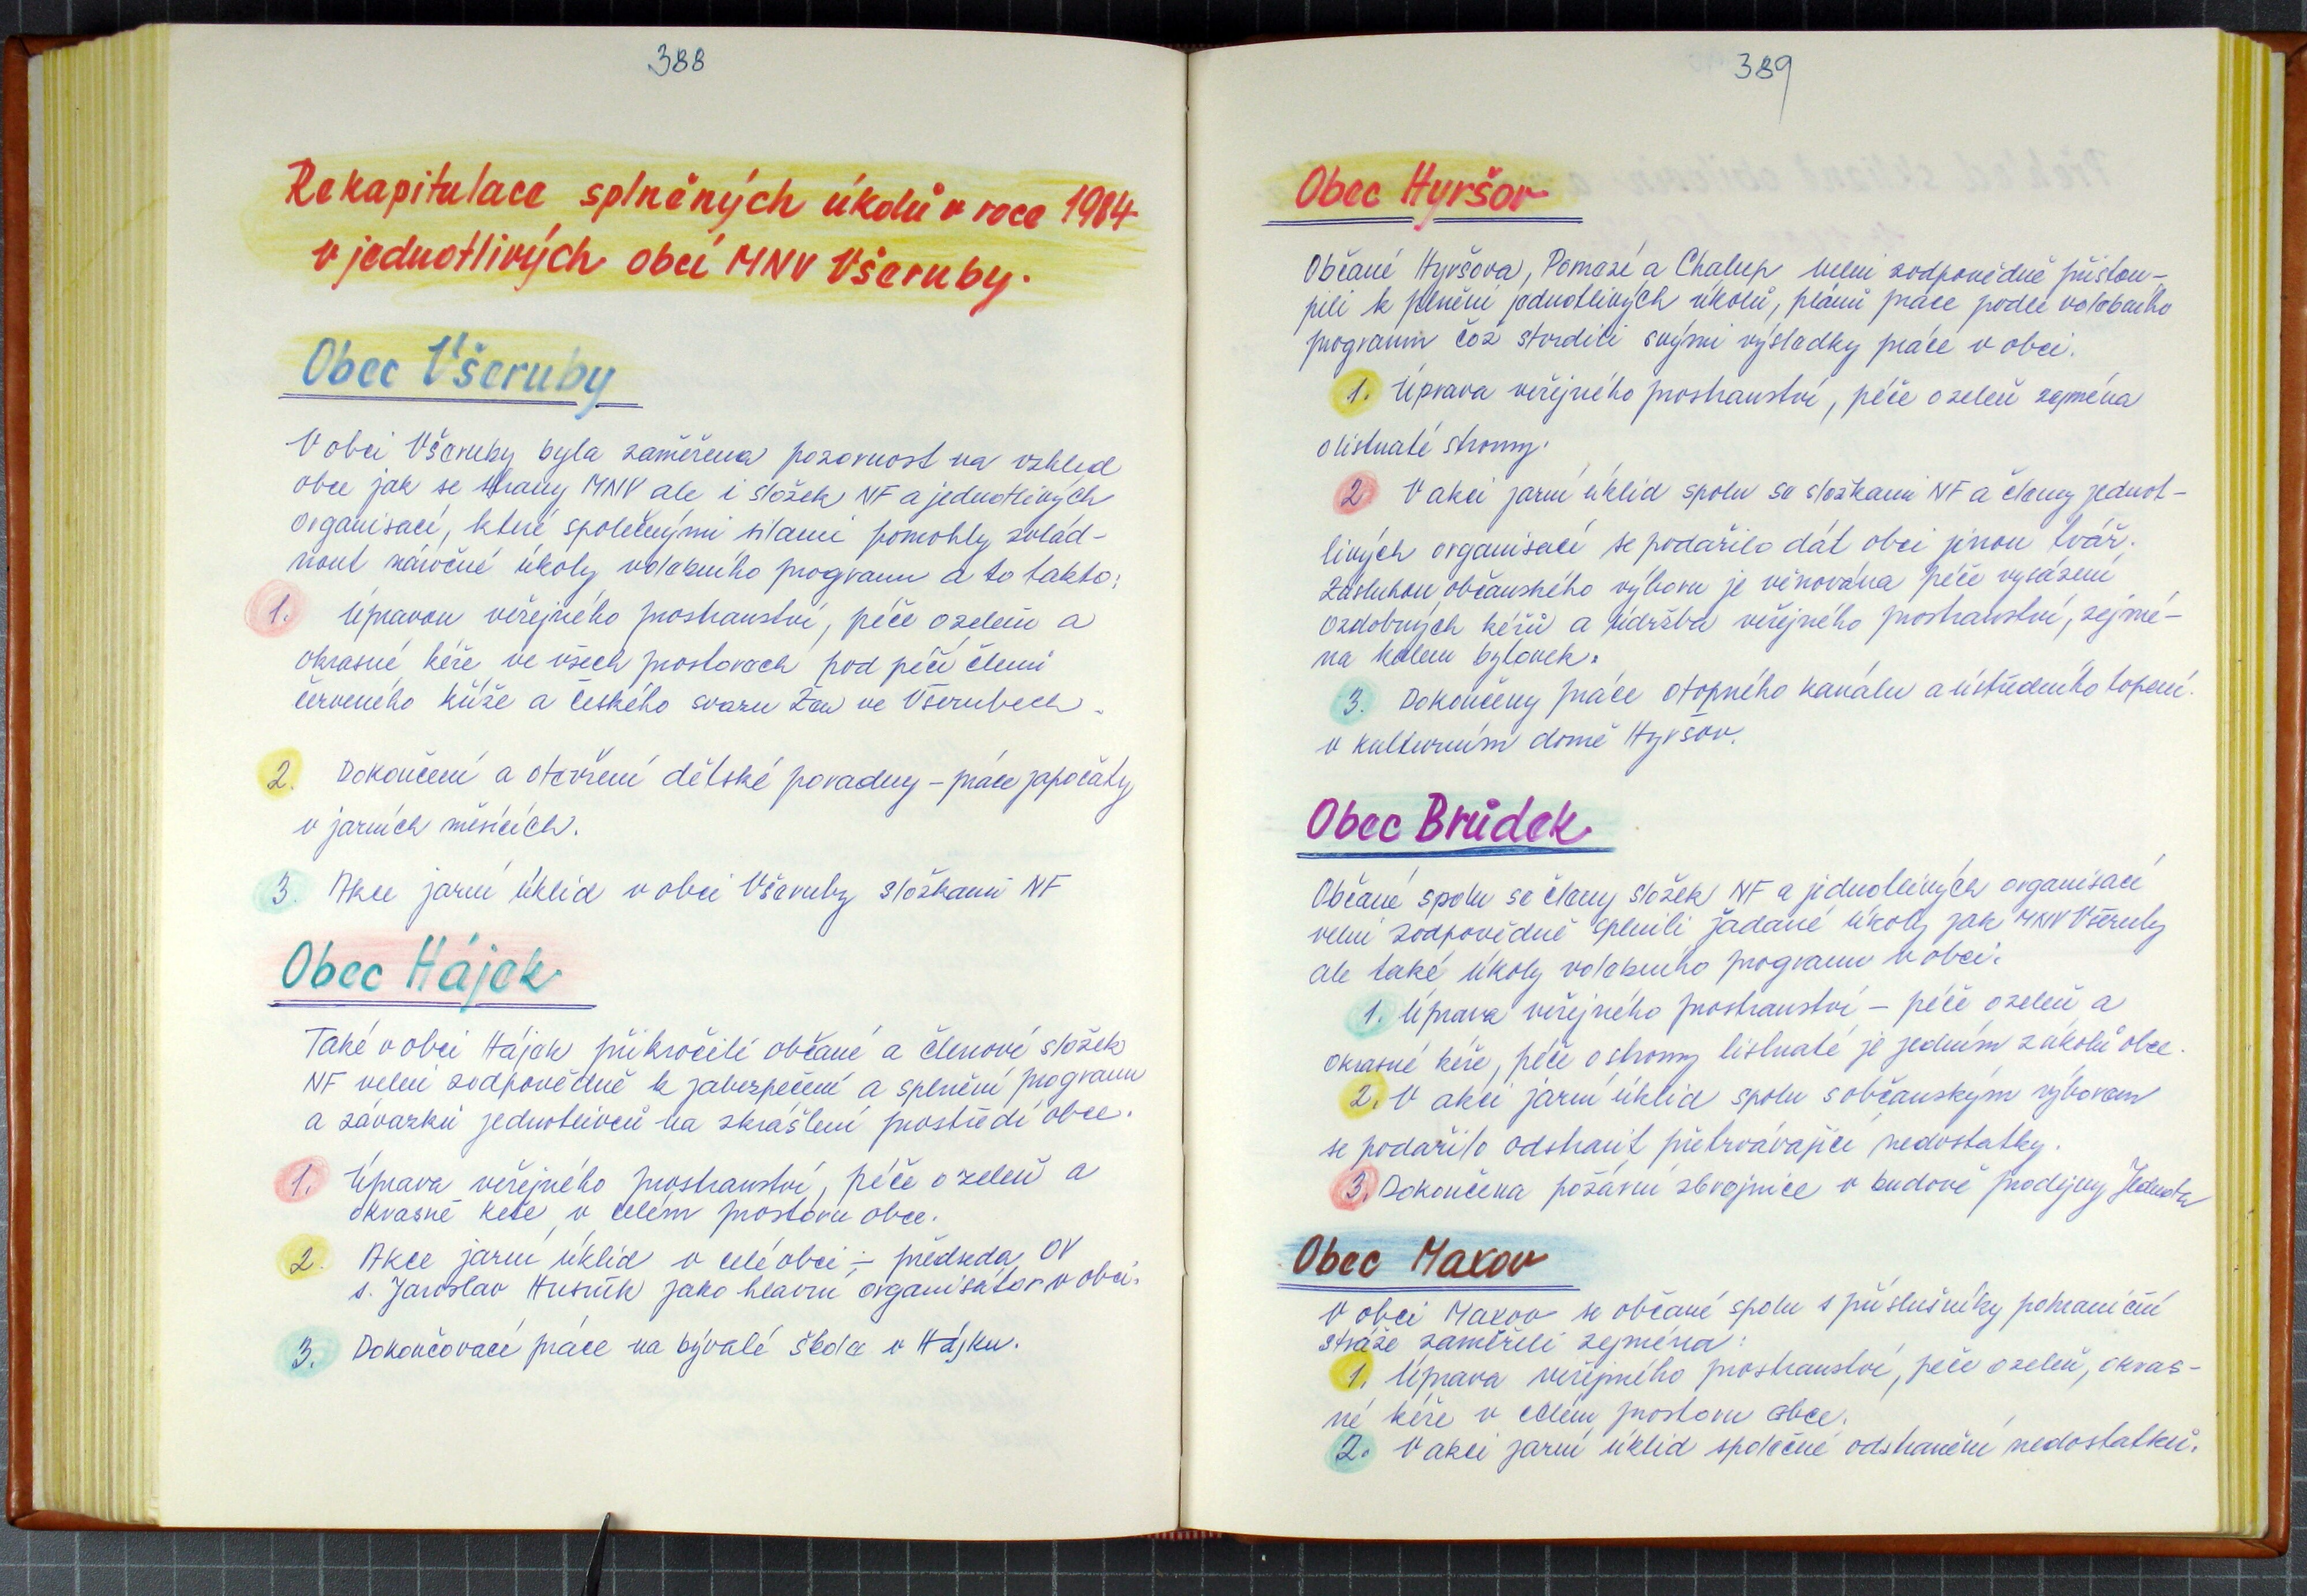 388
Rekapitulace splněných úkolů v roce 1984
v jednotlivých obcí MNV Všeruby.
Obec Všeruby
V obci Všeruby byla zaměřena pozornost na vzhled
obce jak se strany MNV ale i složek NF a jednotlivých
organisací, které společnými silami pomohly zvlád-
nout náročné úkoly volebního programu a to takto:
1. Úpravou veřejného prostranství, péče o zeleň a
okrasné kéře ve všech prostorách pod péčí členů
červeného kříže a českého svazu žen ve Všerubech.
2. Dokončení a otevření dětské poradny - práce započaty
v jarních měsících.
3. Akce jarní úklid v obci Všeruby složkami NF
Obec Hájek
Také v obci Hájek přikročili občané a členové složek
NF velmi zodpovědně k zabezpečení a splnění programu
a závazků jednotlivců na zkrášlení prostředí obce.
1. Úprava veřejného prostranství, péče o zeleň a
okrasné keře v celém prostoru obce.
2. Akce jarní úklid v celé obci - předseda OV
s. Jaroslav Husník jako hlavní organisátor v obci.
3. Dokončovací práce na bývalé škole v Hájku.
389
Obec Hyršov
Občané Hyršova, Pomezí a Chalup velmi zodpovědně přistou-
pili k plnění jednotlivých úkolů, plánů práce podle volebního
programu což stvrdili svými výsledky práce v obci.
1. Úprava veřejného prostranství, péče o zeleň zejména
o listnaté stromy.
2 V akci jarní úklid spolu se složkami NF a členy jednot-
livých organisací se podařilo dát obci jinou tvář.
Zásluhou občanského výboru je věnována péče vysázení
ozdobných kéřů a údržba veřejného prostranství, zejmé-
na kolem bytovek.
3. Dokončeny práce otopného kanálu a ústředního topení
v kulturním domě Hyršov.
Obec Brůdek
Občané spolu se členy složek NF a jednotlivých organisací
velmi zodpovědně splnili žádané úkoly jak MNV Všeruby
ale také úkoly volebního programu v obci.
1. Úprava veřejného prostranství - péče o zeleň a
okrasné kéře, péče o stromy listnaté je jedním z úkolů obce.
2. V akci jarní úklid spolu s občanským výborem
se podařilo odstranit přetrvávající nedostatky.
3. Dokončena požární zbrojnice v budově prodejny Jednota
Obec Maxov
V obci Maxov se občané spolu s příslušníky pohraniční
stráže zaměřili zejména:
1. Úprava veřejného prostranství, péče o zeleň, okras-
né kéře v celém prostoru obce.
2. V akci jarní úklid společné odstranění nedostatků.